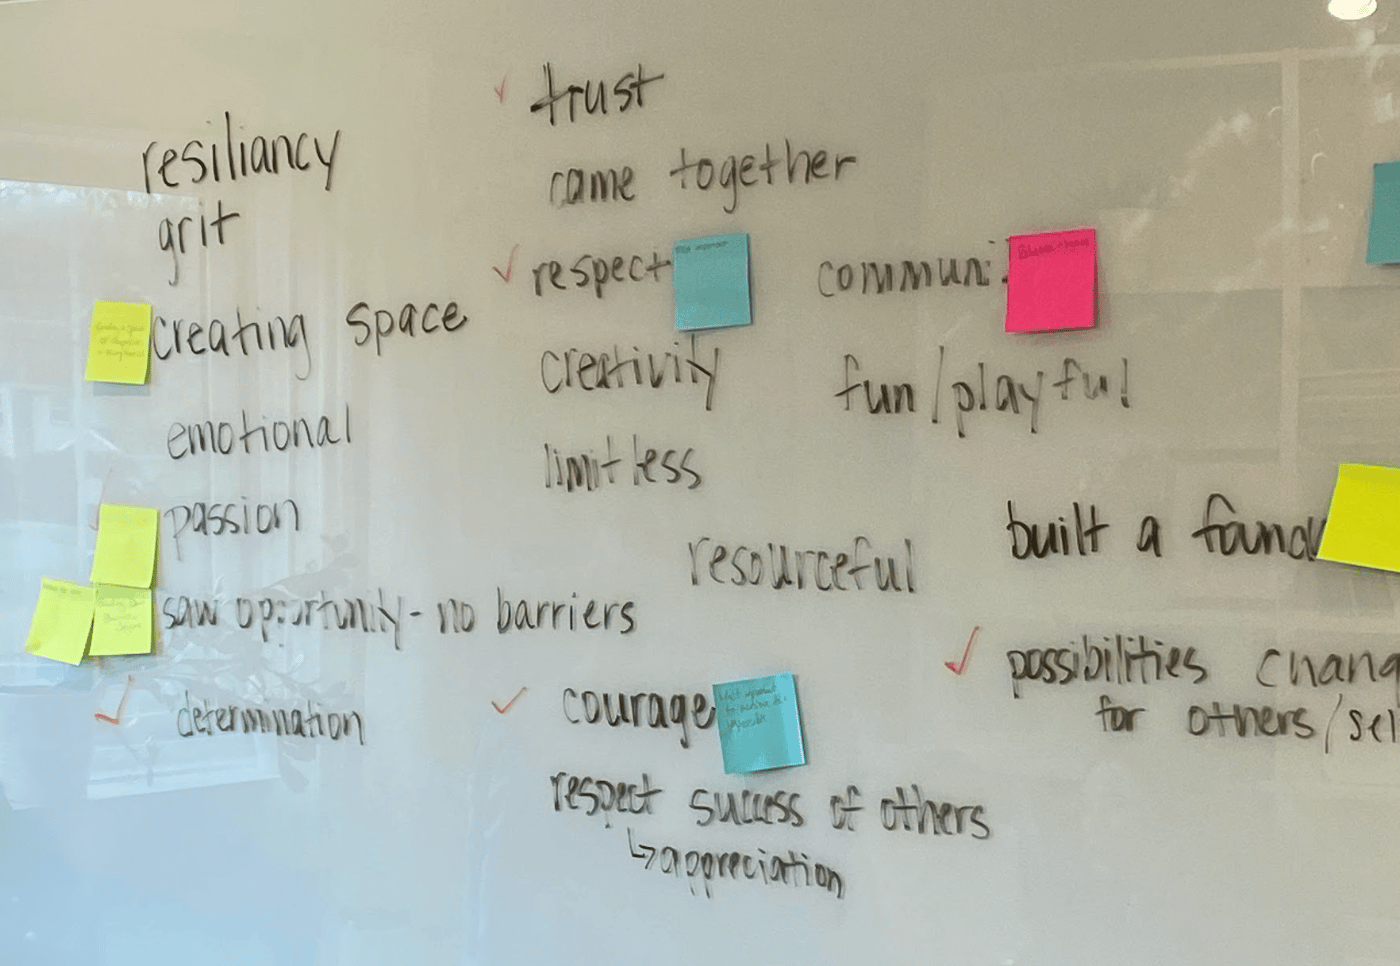 resiliancy
grit
creating space
emotional
passion
saw opportunity - no barriers
determination
trust
came together
respect
creativity
limitless
resourceful
courage
respect success of others
↳ appreciation
communi
fun/playful
built a found
possibilities chang
for others/sel